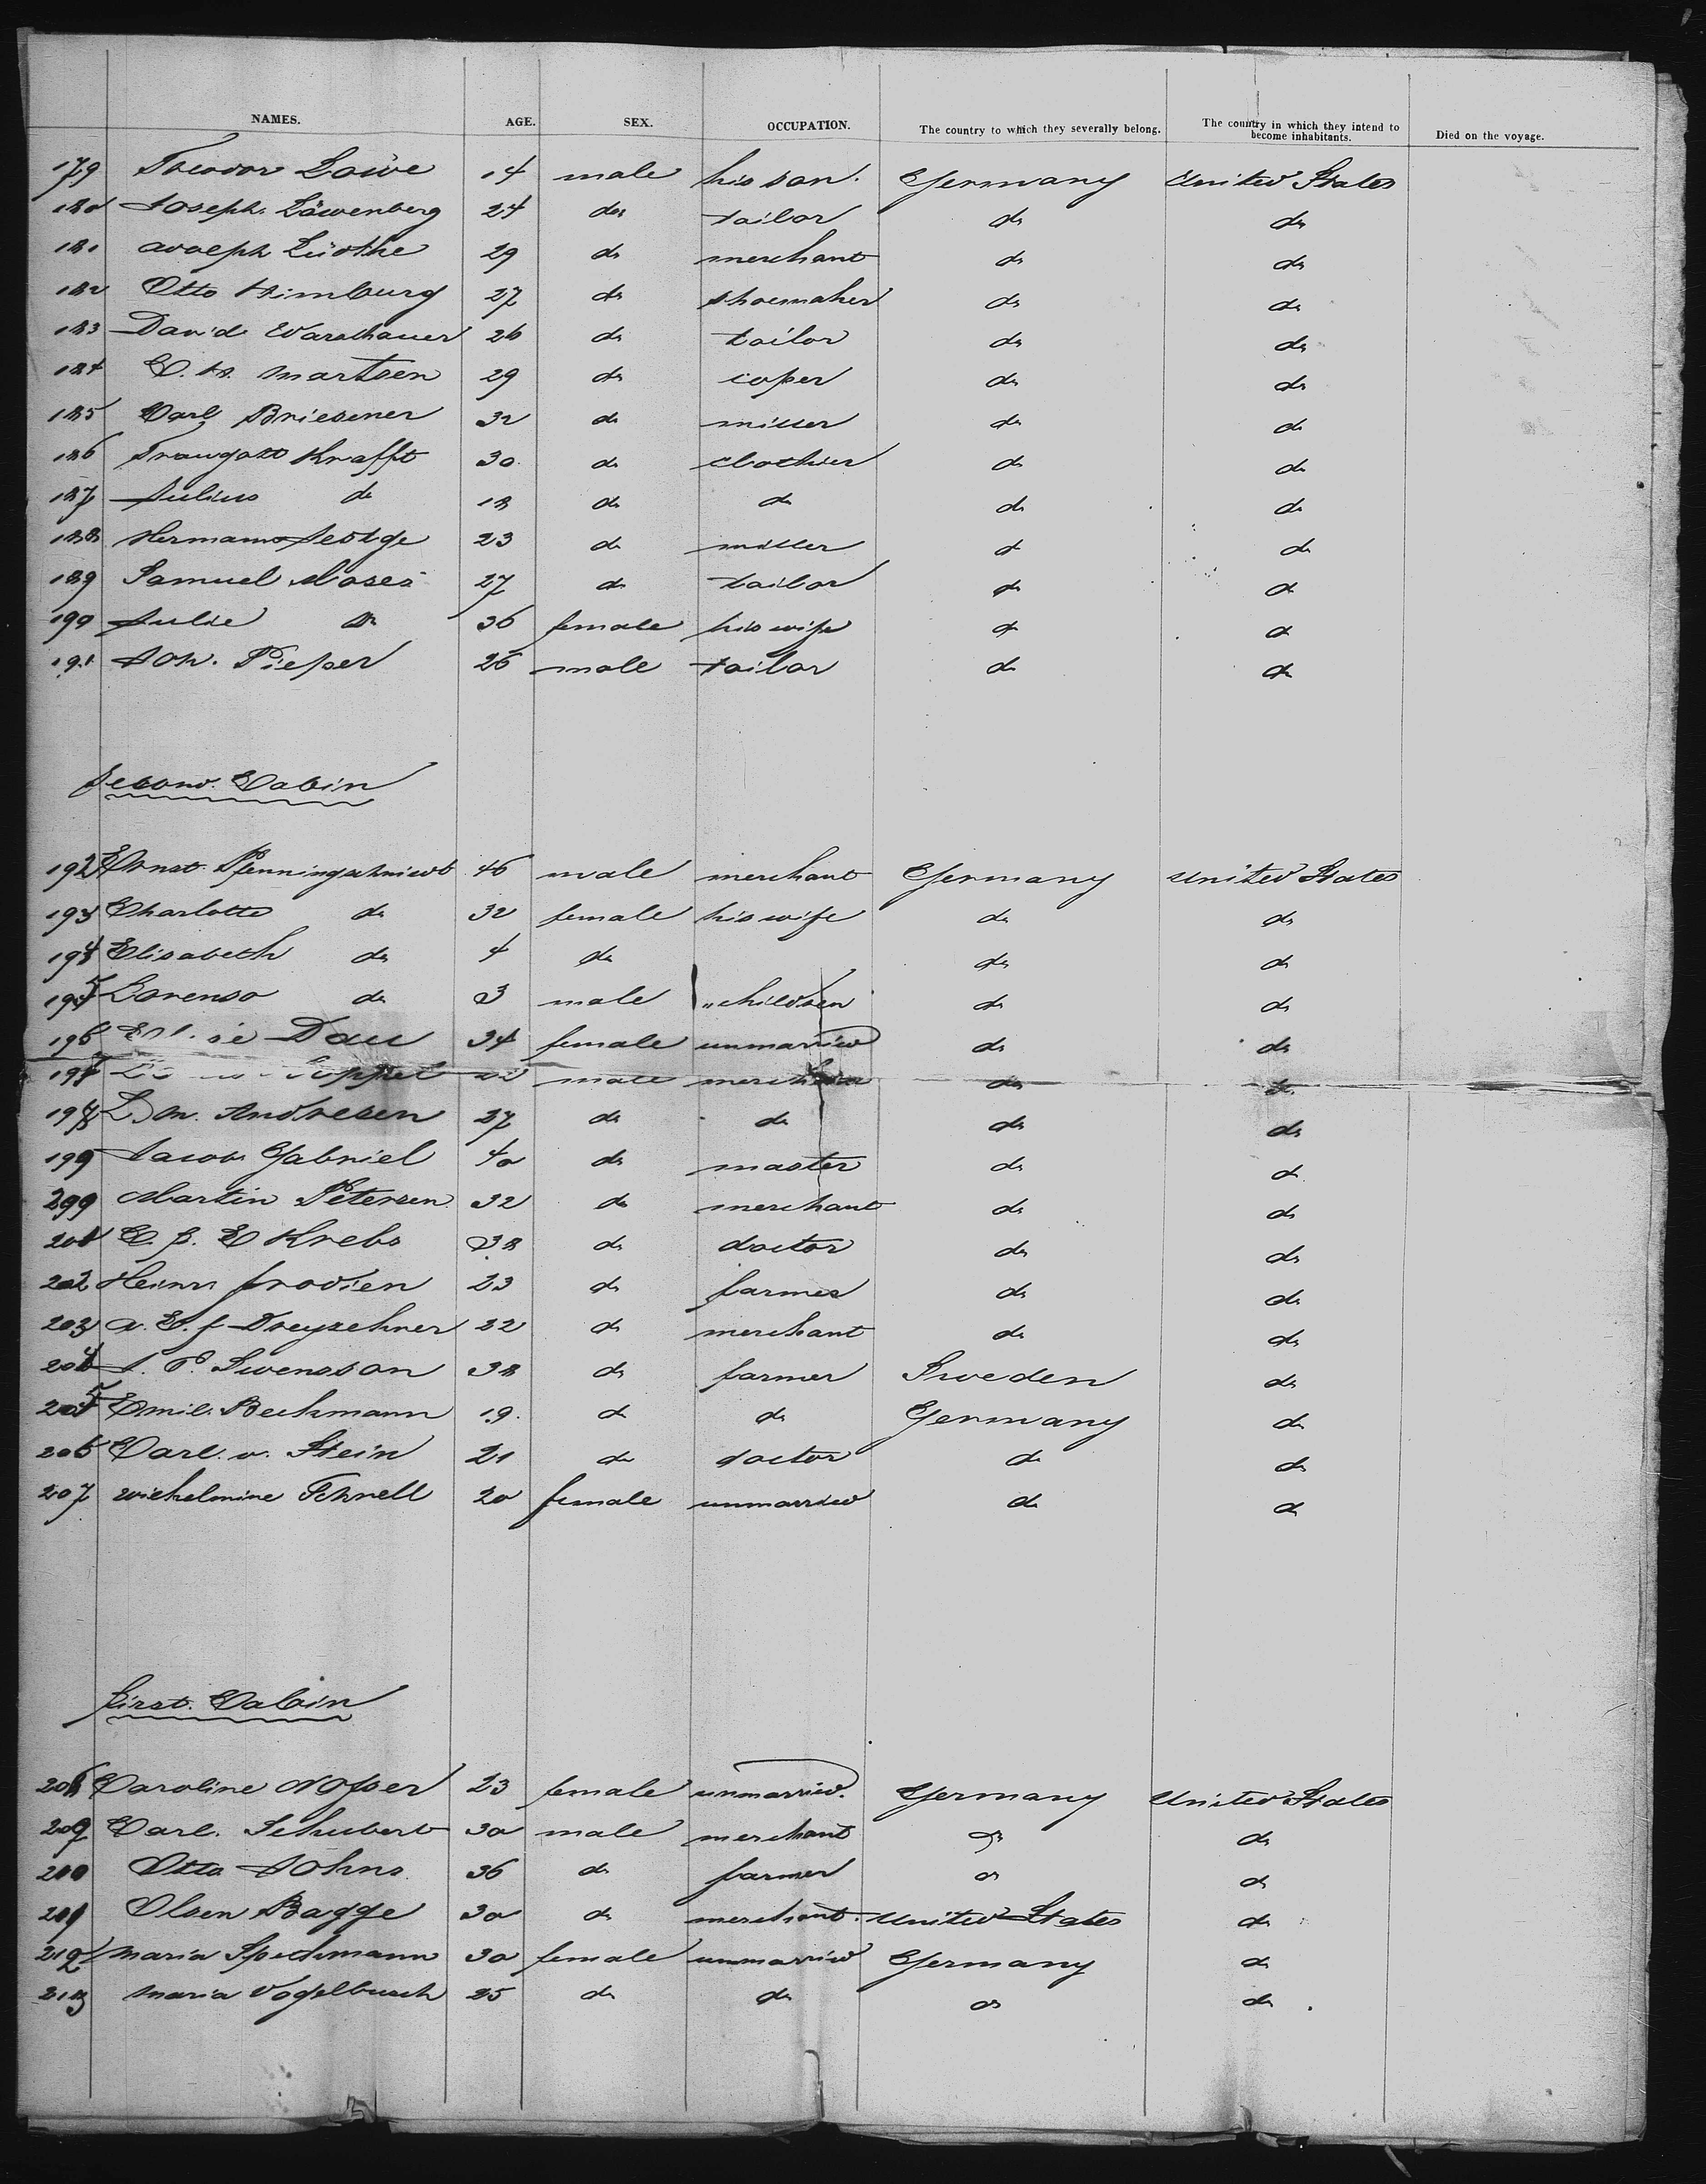 NAMES. AGE. SEX. OCCUPATION. The country to which they severally belong. The country in which they intend to become inhabitants. Died on the voyage.
179 Theodor Löwe 14 male his son. Germany United States
180 Joseph Löwenberg 24 do tailor do do
181 Adolph Lüdthe 29 do merchant do do
182 Otto Himburg 27 do shoemaker do do
183 David Warschauer 26 do tailor do do
184 C. H. Martsen 29 do coper do do
185 Carl Briesener 32 do miller do do
186 Traugott Krafft 30 do clothier do do
187 Julius do 18 do do do do
188 Hermann 23 do miller do do
189 Samuel Moses 27 do tailor do do
190 Julie do 36 female his wife do do
191 Joh. Pieper 26 male tailor do do
Second Cabin
192 Ernst Pfenningschmidt 46 male merchant Germany United States
193 Charlotte do 32 female his wife do do
194 Elisabeth do 4 do do do
195 Lorenso do 3 male children do do
196 Dau 34 female unmarried do do
197 male merchant do do
198 Andresen 27 do do do do
199 Jacob Gabriel 40 do master do do
200 Martin Petersen 32 do merchant do do
201 C. F. E Krebs 38 do doctor do do
202 Heinr. Frodien 23 do farmer do do
203 A. E. F Dreyzehner 22 do merchant do do
204 J. P. Swensson 38 do farmer Sweden do
205 Emil Beckmann 19 do do Germany do
206 Carl v. Stein 21 do doctor do do
207 Wilhelmine Schnell 20 female unmarried do do
First Cabin
208 Caroline 23 female unmarried. Germany United States
209 Carl Schubert 30 male merchant do do
210 Otto Johns 36 do farmer do do
211 Olsen Bagge 30 do merchant United States do
212 Maria Speckmann 30 female unmarried Germany do
213 Maria Vogelbusch 25 do do do do